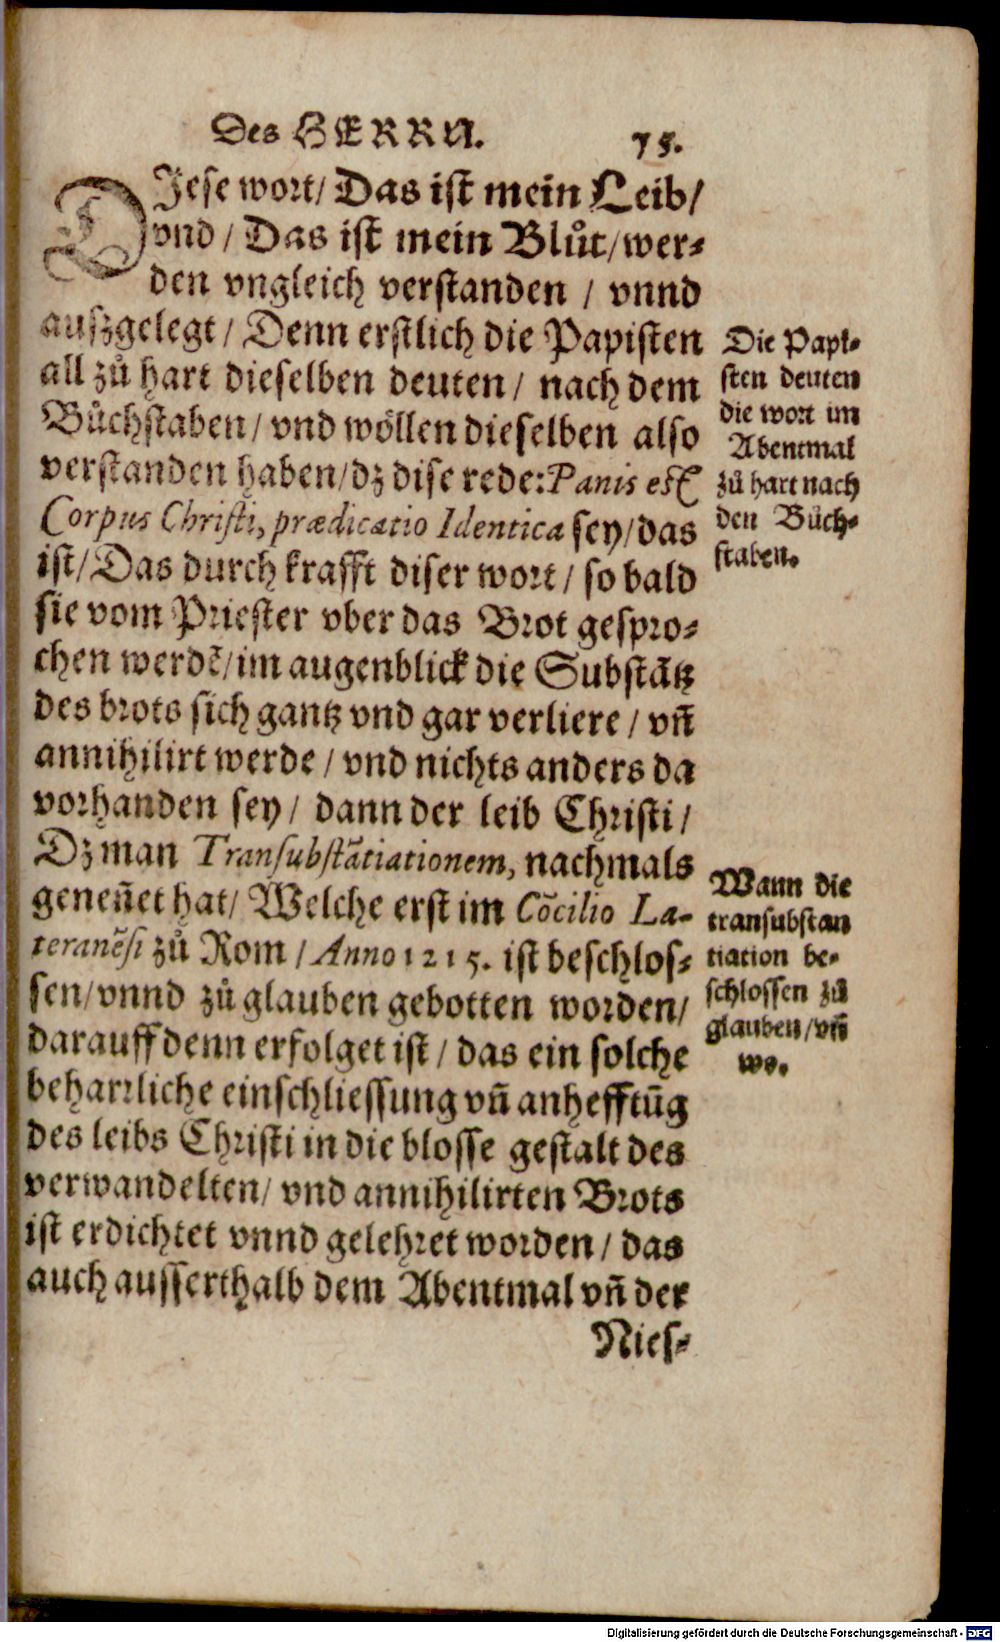 Des HERRN. 75.
DIese wort/ Das ist mein Leib/
vnd / Das ist mein Blůt/wer⸗
den vngleich verstanden / vnnd
auszgelegt / Denn erstlich die Papisten
all zů hart dieselben deuten / nach dem
Bůchstaben / vnd wöllen dieselben also
verstanden haben/dz dise rede: Panis est
Corpus Christi, prædicatio Identica sey/das
ist/ Das durch krafft diser wort / so bald
sie vom Priester vber das Brot gespro⸗
chen werdē/im augenblick die Substātz
des brots sich gantz vnd gar verliere / vñ
annihilirt werde / vnd nichts anders da
vorhanden sey / dann der leib Christi /
Dz man Transubstātiationem, nachmals
geneñet hat/ Welche erst im Cōcilio La-
teranēsi zů Rom / Anno 1215. ist beschlos⸗
sen/vnnd zů glauben gebotten worden/
darauff denn erfolget ist / das ein solche
beharrliche einschliessung vñ anhefftūg
des leibs Christi in die blosse gestalt des
verwandelten/ vnd annihilirten Brots
ist erdichtet vnnd gelehret worden / das
auch ausserthalb dem Abentmal vñ der
Nies⸗
Die Papi⸗
sten deuten
die wort im
Abentmal
zů hart nach
den Bůch⸗
staben.
Wann die
transubstan
tiation be⸗
schlossen zů
glauben/vñ
wo.
Digitalisierung gefördert durch die Deutsche Forschungsgemeinschaft - DFG